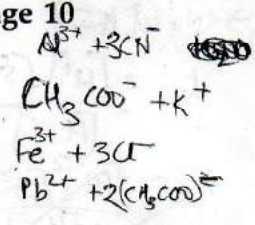 ge 10
Al³⁺ + 3CN⁻
CH₃COO⁻ + K⁺
Fe³⁺ + 3Cl⁻
Pb²⁺ + 2(CH₃COO)⁻